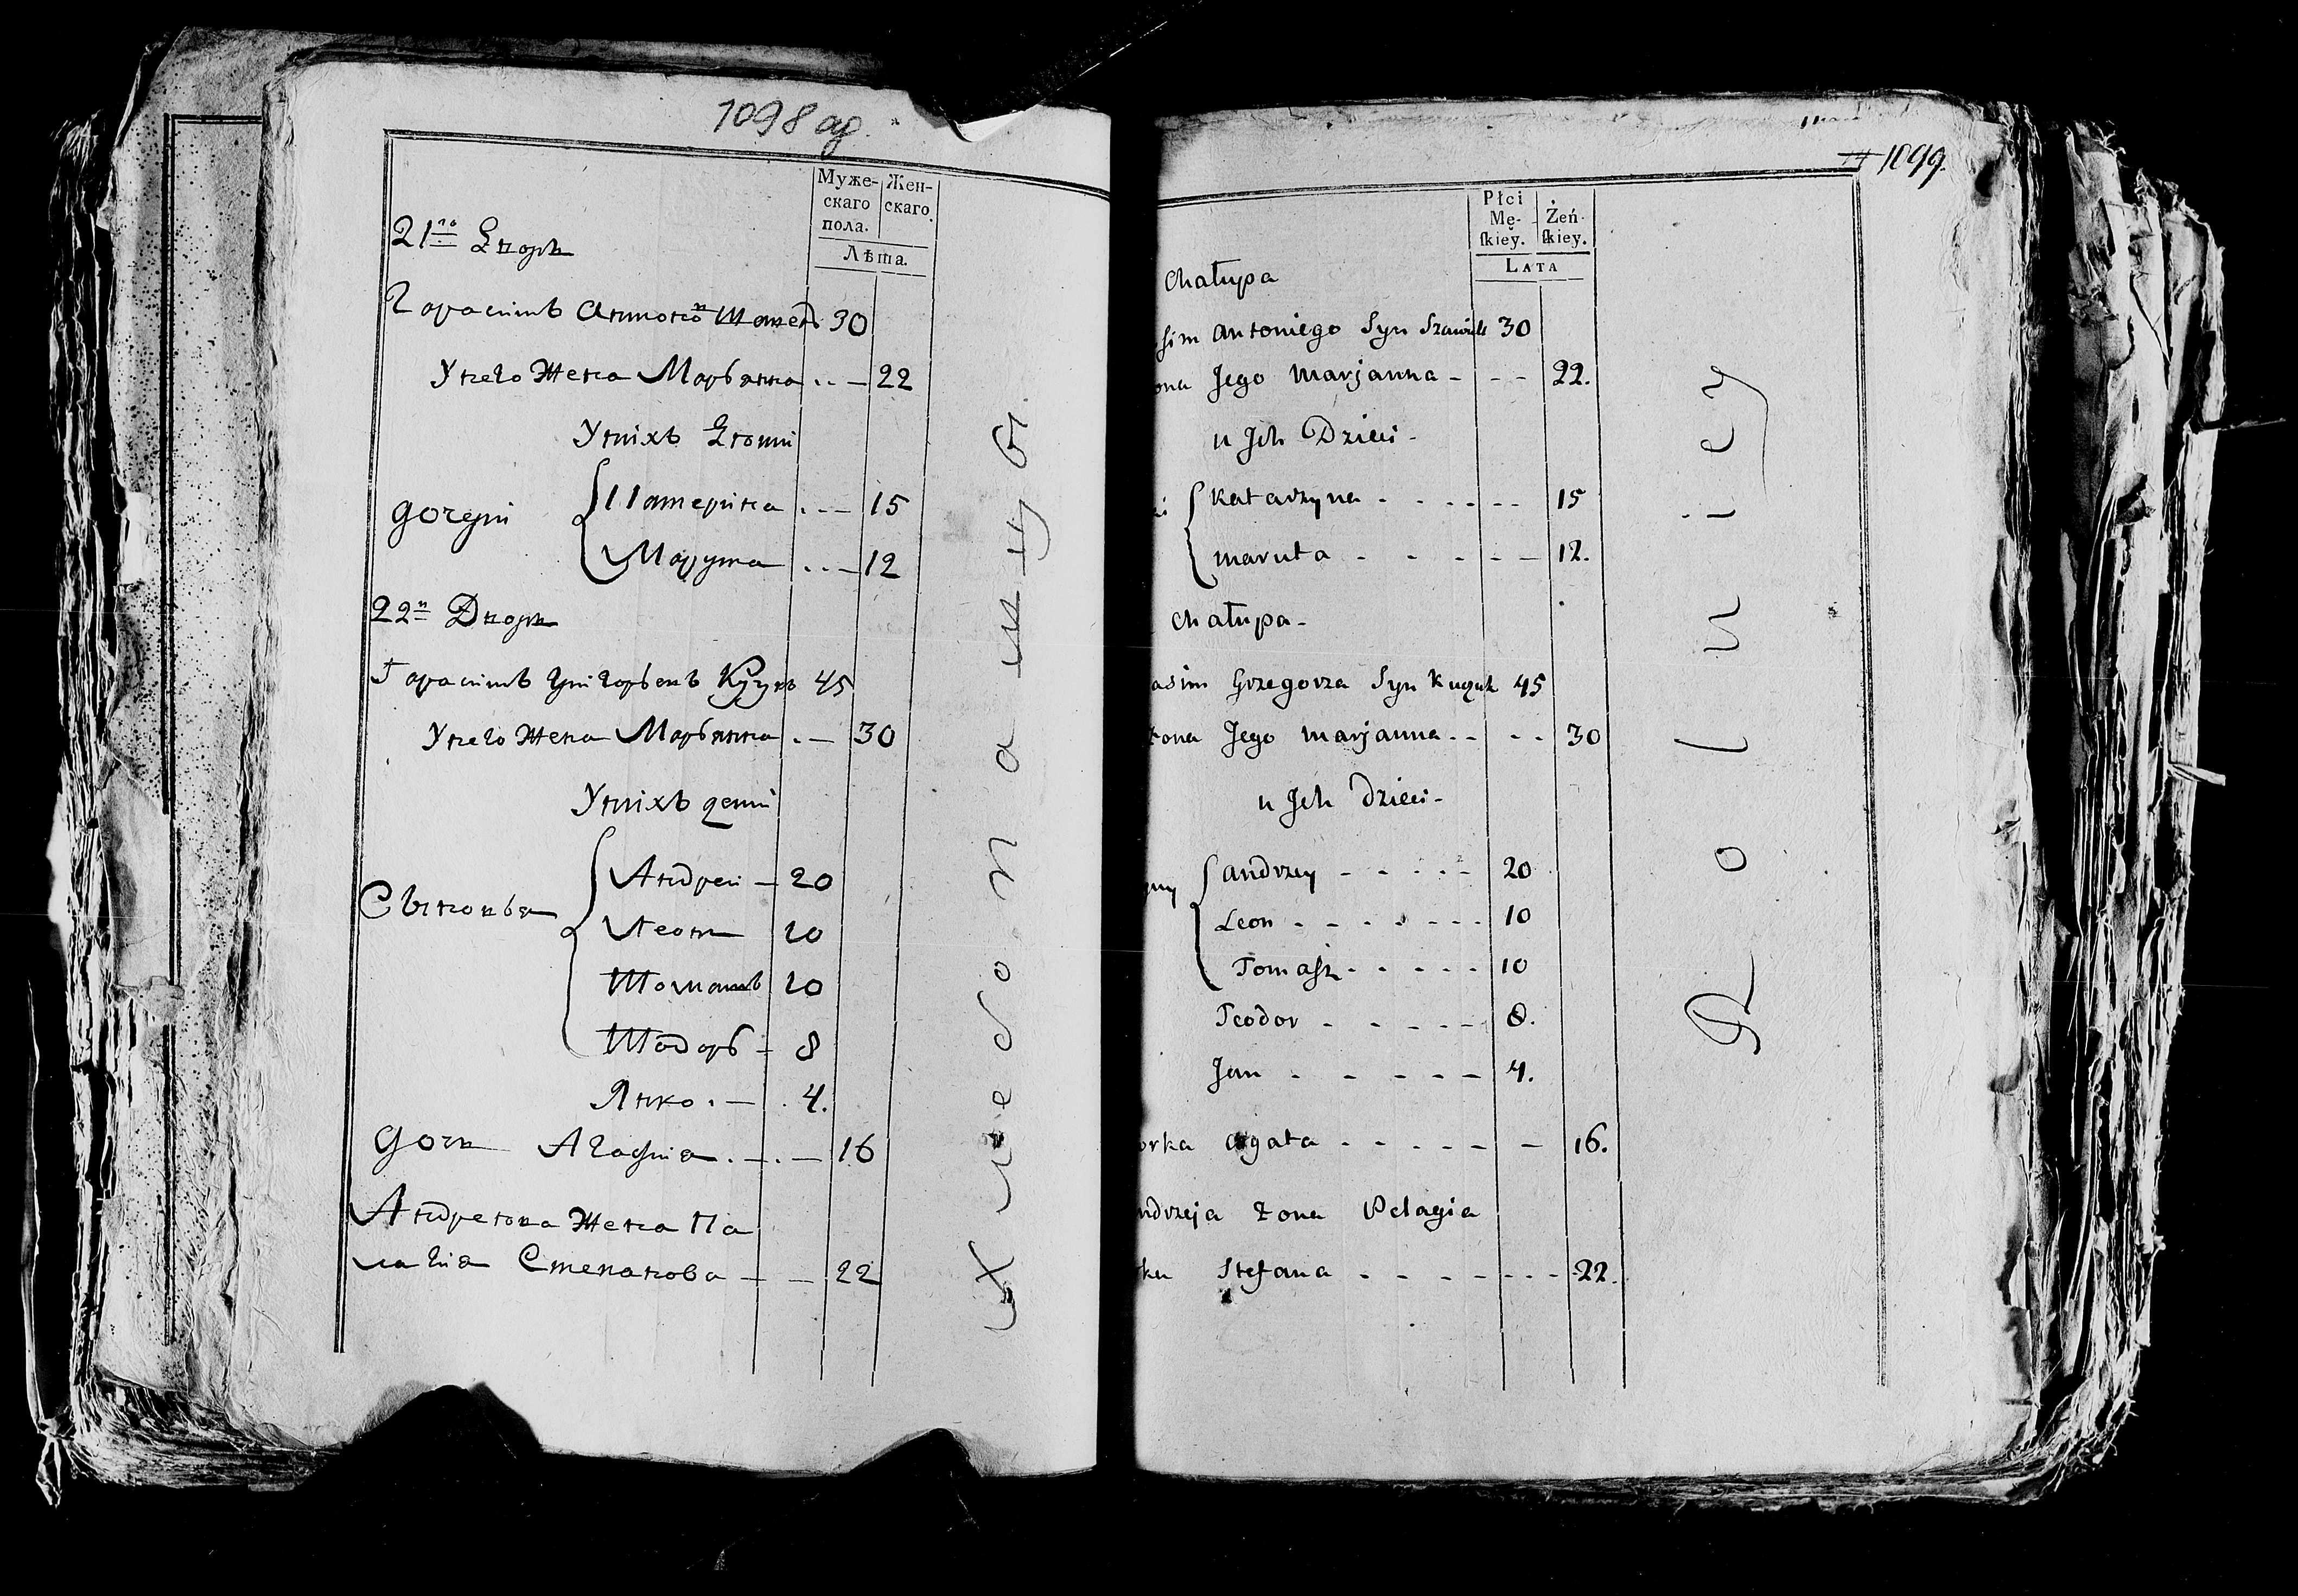 1098 об.
Муже-
скаго
пола.
Жен-
скаго.
Лѣта.
21го Дворъ
Гарасимъ Антоновъ 30
У него Жена Марьянна 22
У нихъ Дети
дочери
Катерина 15
Марута 12
22й Дворъ
Гарасимъ Григорьевъ Куцукъ 45
У него Жена Марьянна 30
У нихъ дети
Сыновья
Андреи 20
Леонъ 10
Томашъ 10
Тодоръ 8
Янко 4.
дочь Агафия 16
Андреева Жена Па
лагия Степанова 22
Хлебопашцы.
1099.
Płci
Mę-
ſkiey.
Żeń-
ſkiey.
LATA
Chałupa
sim Antoniego Syn 30
ona Jego Marjanna 22.
u Jch Dzieci
Katarzyna 15
Maruta 12.
Chałupa
asim Grzegorza Syn Kucuk 45
żona Jego Marjanna 30
u Jch Dzieci
Andrzey 20
Leon 10
Tomasz 10
Teodor 8.
Jan 4.
orka Agata 16.
ndrzeja Żona Pelagia
rka Stefana 22.
Rolniey